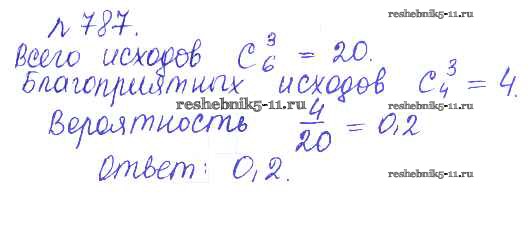 reshebnik5-11.ru
№ 787.
Всего исходов C₆³ = 20.
Благоприятных исходов C₄³ = 4.
reshebnik5-11.ru
Вероятность 4/20 = 0,2
Ответ: 0,2.
reshebnik5-11.ru